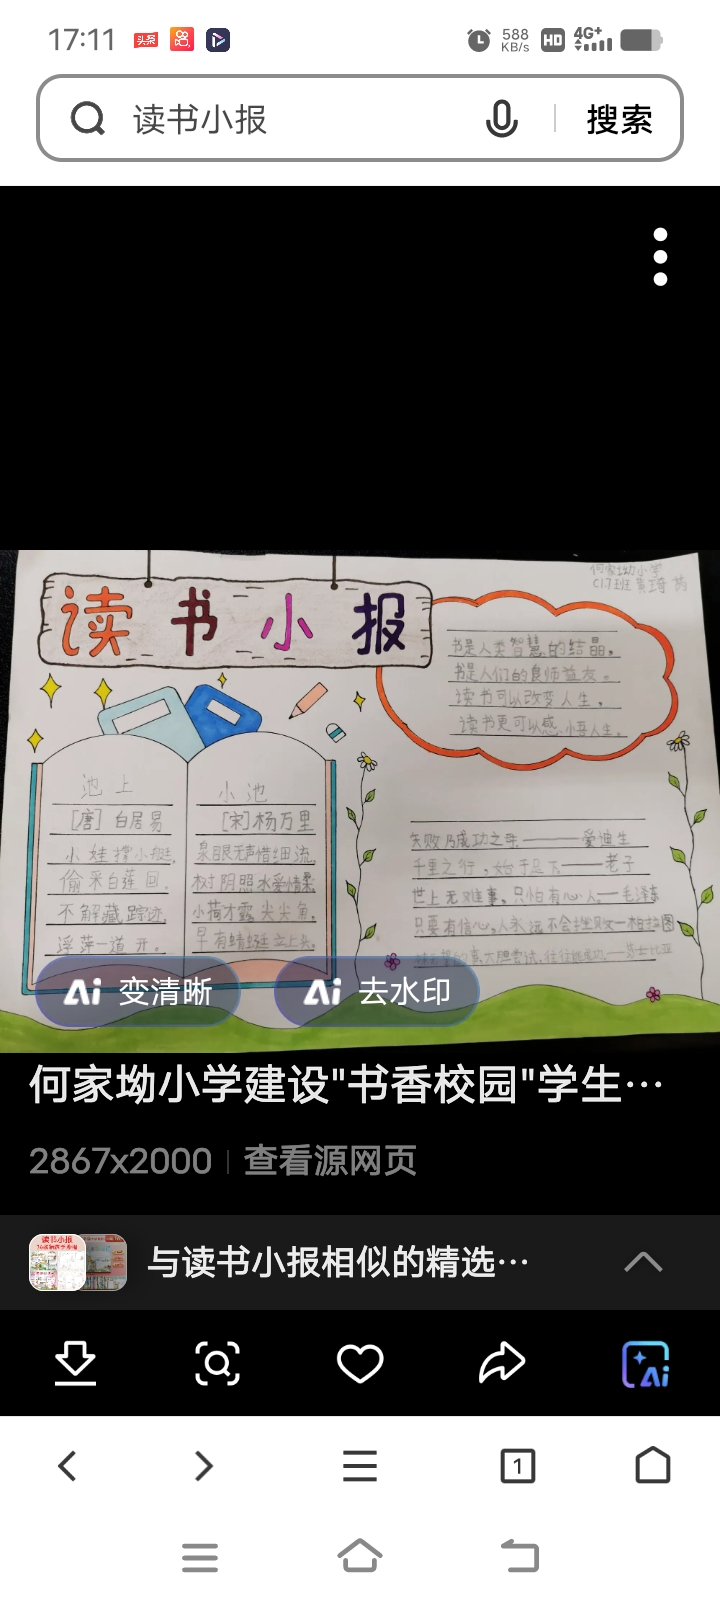 17:11
头条
588
KB/s
HD
4G+
读书小报
搜索
读书小报
何家坳小学
C17班
书是人类智慧的结晶。
书是人们的良师益友。
读书可以改变人生,
读书更可以感小吾人生。
池上
[唐] 白居易
小娃撑小艇,
偷采白莲回。
不解藏踪迹,
浮萍一道开。
小池
[宋]杨万里
泉眼无声惜细流,
树阴照水爱情柔
小荷才露尖尖角,
早有蜻蜓立上头。
失败乃成功之母———爱迪生
千里之行,始于足下———老子
世上无难事,只怕有心人,—毛泽东
只要有信心,人永远不会挫败—柏拉图
Ai 变清晰
Ai 去水印
何家坳小学建设"书香校园"学生…
2867x2000
查看源网页
读书小报
与读书小报相似的精选…
Ai
1